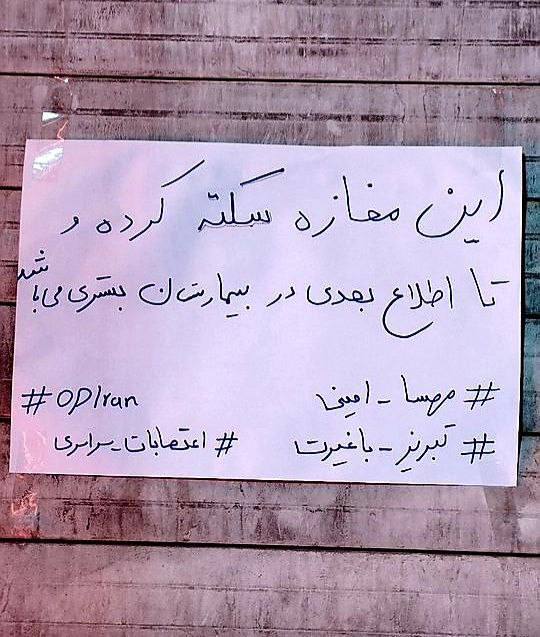 این مغازه سکته کرده و
تا اطلاع بعدی در بیمارستان بستری می باشد
#مهسا_امینی #OpIran
#تبریز_باغیرت #اعتصابات_سراسری